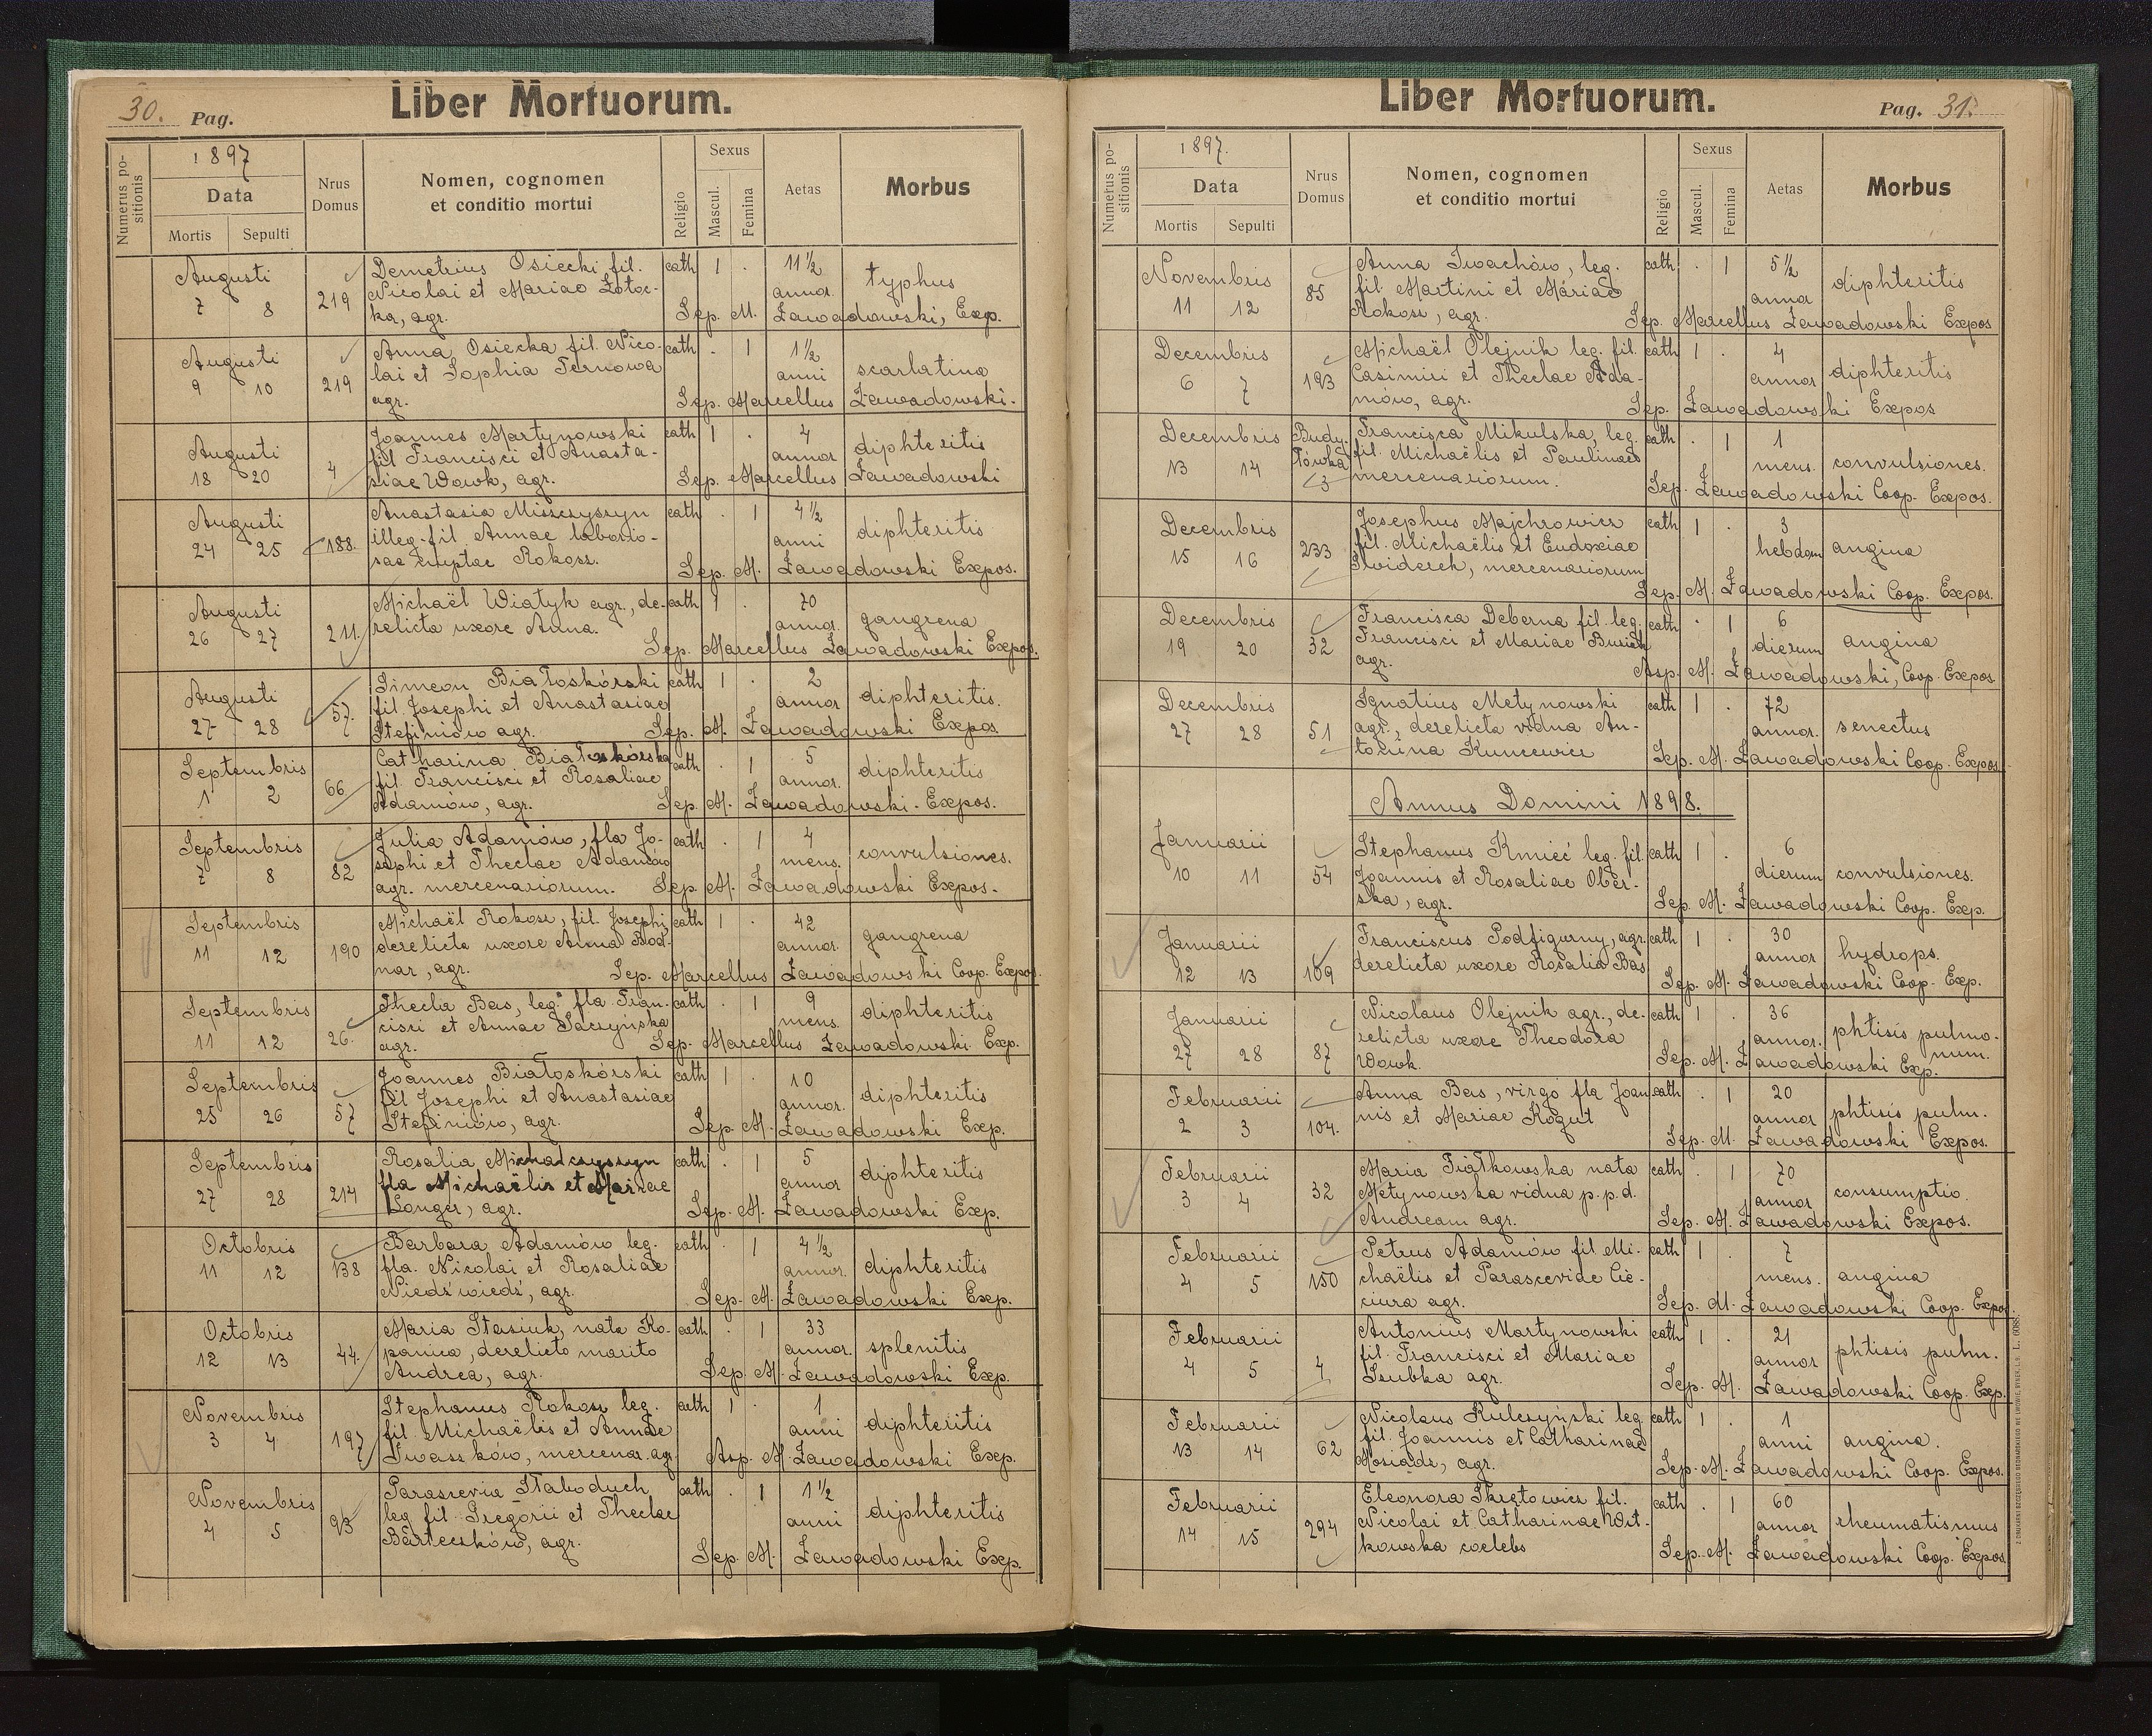 30. Pag.
Liber Mortuorum.
Numerus positionis
1897
Data
Mortis Sepulti
Nrus Domus
Nomen, cognomen
et conditio mortui
Religio
Sexus
Mascul. Femina
Aetas
Morbus
Augusti 7 8 219
Demetrius Osiecki fil. cath 1 . 11 1/2 annor. typhus
Nicolai et Mariae Złotoc-
ka, agr. Sep. M. Zawadowski, Exp.
Augusti 9 10 219
Anna Osiecka fil. Nico- cath . 1 1 1/2 anni scarlatina
lai et Sophia Ternowa
agr. Sep. Marcellus Zawadowski.
Augusti 18 20 4
Joannes Martynowski cath 1 . 4 annor diphteritis
fil Francisci et Anasta-
siae Wowk, agr. Sep. Marcellus Zawadowski
Augusti 24 25 188.
Anastasia Miszczyszyn cath . 1 4 1/2 anni diphteritis
illeg. fil Annae laborio-
sae nuptae Rokosz. Sep. M. Zawadowski Expos.
Augusti 26 27 211.
Michaël Wiatyk agr., de- cath 1 . 70 annor. gangrena
relicta uxore Anna.
Sep. Marcellus Zawadowski Expos.
Augusti 27 28 57.
Simeon Białoskórski cath 1 . 2 annor diphteritis.
fil Josephi et Anastasiae
Stefiniów agr. Sep. M. Zawadowski Expos.
Septembris 1 2 66
Catharina Białoskórska cath . 1 5 annor. diphteritis
fil. Francisci et Rosaliae
Adamów, agr. Sep. M. Zawadowski. Expos.
Septembris 7 8 82
Julia Adamów, fla Jo- cath . 1 4 mens. convulsiones.
sephi et Theclae Adamów
agr. mercenariorum. Sep. M. Zawadowski Expos.
Septembris 11 12 190
Michaël Rokosz, fil. Josephi cath 1 . 42 annor. gangrena
derelicta uxore Anna Bod-
nar, agr. Sep. Marcellus Zawadowski Coop. Expos.
Septembris 11 12 26.
Thecla Bas, leg. fla Fran- cath . 1 9 mens. diphteritis
cisci et Annae Saczyńska
agr. Sep. Marcellus Zawadowski. Exp.
Septembris 25 26 57
Joannes Białoskórski cath 1 . 10 annor. diphteritis
fil Josephi et Anastasiae
Stefiniów, agr. Sep. M. Zawadowski Exp.
Septembris 27 28 214
Rosalia Michalczyszyn cath . 1 5 annor diphteritis
fla Michaëlis et Mariae
Longer, agr. Sep. M. Zawadowski Exp.
Octobris 11 12 138
Barbara Adamów leg. cath . 1 4 1/2 annor. diphteritis
fla. Nicolai et Rosaliae
Niedźwiedź, agr. Sep. M. Zawadowski Exp.
Octobris 12 13 44.
Maria Stasiuk, nata Ko- cath . 1 33 annor. splenitis
panica, derelicto marito
Andrea, agr. Sep. M. Zawadowski Exp.
Novembris 3 4 197
Stephanus Rokosz leg. cath 1 . 1 anni diphteritis
fil. Michaëlis et Annae
Iwaszków, mercenar. agr. Asp. M. Zawadowski Exp.
Novembris 4 5 93
Parascevia Słaboduch cath . 1 1 1/2 anni diphteritis
leg fil. Gregorii et Theclae
Barteczków, agr. Sep. M. Zawadowski Exp.
Liber Mortuorum.
Pag. 31.
Numerus positionis
1897.
Data
Mortis Sepulti
Nrus Domus
Nomen, cognomen
et conditio mortui
Religio
Sexus
Mascul. Femina
Aetas
Morbus
Novembris 11 12 85
Anna Iwachów, leg. cath . 1 5 1/2 annor diphteritis
fil. Martini et Mariae
Rokosz, agr. Sep. Marcellus Zawadowski Expos
Decembris 6 7 193
Michaël Olejnik leg. fil. cath 1 . 4 annor diphteritis
Casimiri et Theclae Ada-
mów, agr. Sep. Zawadowski Expos
Decembris 13 14 Budyłówka 3
Francisca Mikulska, leg. cath . 1 1 mens. convulsiones.
fil. Michaëlis et Paulinae
mercenariorum. Sep. Zawadowski Coop. Expos.
Decembris 15 16 233
Josephus Majchrowicz cath 1 . 3 hebdom angina
fil. Michaëlis et Eudoxiae
Świderek, mercenariorum
Sep. M. Zawadowski Coop. Expos.
Decembris 19 20 32
Francisca Deberna fil. leg. cath . 1 6 dierum angina
Francisci et Mariae Busiak
agr. Asp. M. Zawadowski, Coop. Expos
Decembris 27 28 51
Ignatius Metynowski cath 1 . 72 annor. senectus
agr., derelicta vidua An-
tonina Kuncewicz Sep. M. Zawadowski Coop. Expos
Annus Domini 1898.
Januarii 10 11 54
Stephanus Kmieć leg. fil. cath 1 . 6 dierum convulsiones.
Joannis et Rosaliae Ober-
ska, agr. Sep. M. Zawadowski Coop. Exp.
Januarii 12 13 109
Franciscus Podfigurny, agr. cath 1 . 30 annor hydrops.
derelicta uxore Rosalia Bas
Sep. M. Zawadowski Coop. Exp.
Januarii 27 28 87
Nicolaus Olejnik agr., de- cath 1 . 36 annor. phtisis pulmo-
relicta uxore Theodora num.
Wowk. Sep. M. Zawadowski Exp.
Februarii 2 3 104.
Anna Bas, virgo fla Joan- cath . 1 20 annor phtisis pulm.
nis et Mariae Kogut
Sep. M. Zawadowski Expos.
Februarii 3 4 32
Maria Fiałkowska nata cath . 1 70 annor consumptio.
Metynowska vidua p. p. d.
Andream agr. Sep. M. Zawadowski Expos.
Februarii 4 5 150
Petrus Adamów fil. Mi- cath 1 . 7 mens. angina
chaëlis et Parasceviae Cie-
ciura agr. Sep. M. Zawadowski Coop. Expos.
Februarii 4 5 4
Antonius Martynowski cath 1 . 21 annor phtisis pulm.
fil. Francisci et Mariae
Czubka agr. Sep. M. Zawadowski Coop. Exp.
Februarii 13 14 62
Nicolaus Kulczyński leg. cath 1 . 1 anni angina.
fil. Joannis et Catharinae
Mosiądz, agr. Sep. M. Zawadowski Coop. Expos.
Februarii 14 15 294
Eleonora Skrętowicz fil. cath . 1 60 annor rheumatismus
Nicolai et Catharinae Wit-
kowska coelebs Sep. M. Zawadowski Coop. Expos